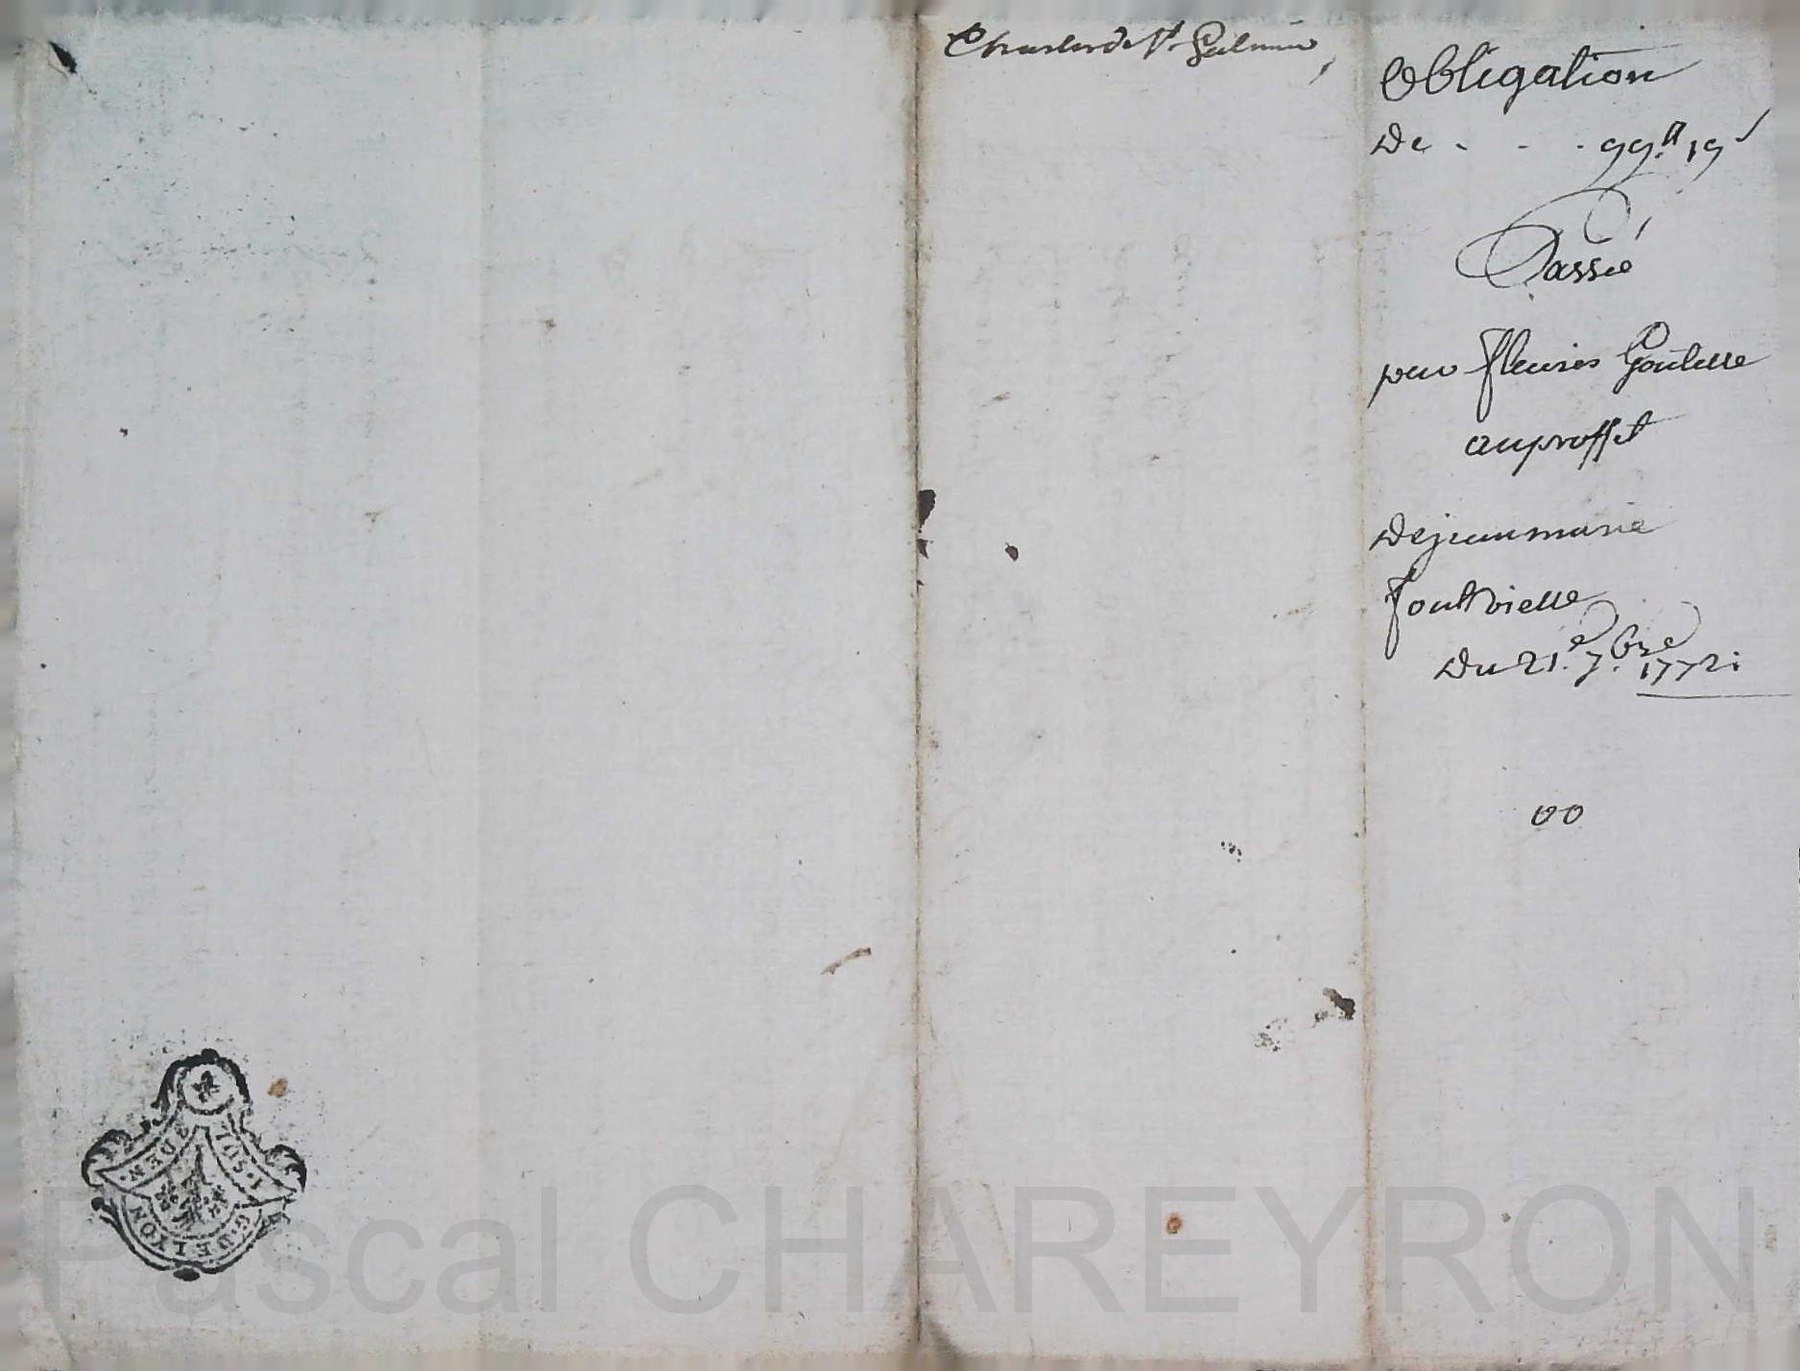 de St Galmier
Obligation
De - - - 99.tt 19 s
Passé
par fleuries Goutelle
auproffit
Dejeanmarie
font Vielle
Du 21.e 7.bre 1772:
00
3 DEN.
1. SOL
G. DE LYON
Pascal CHAREYRON